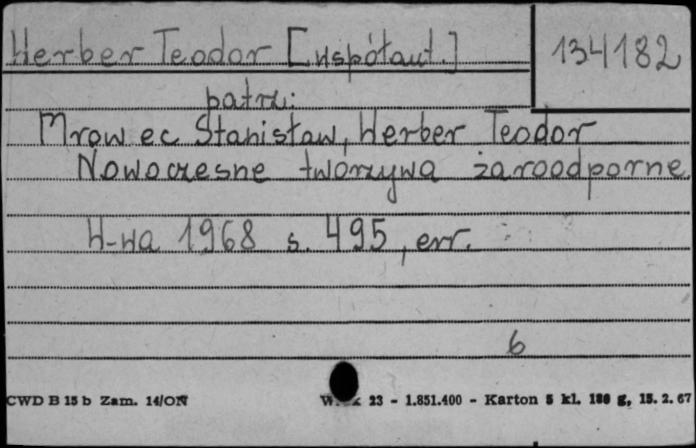 Herber Teodor [współaut.]
134182
patrz:
Mrowec Stanisław, Herber Teodor
Nowoczesne tworzywa żaroodporne.
W-wa 1968 s. 495, err.
6
CWD B 15 b Zam. 14/ON
23 - 1.851.400 - Karton 5 kl. 180 g, 15. 2. 67